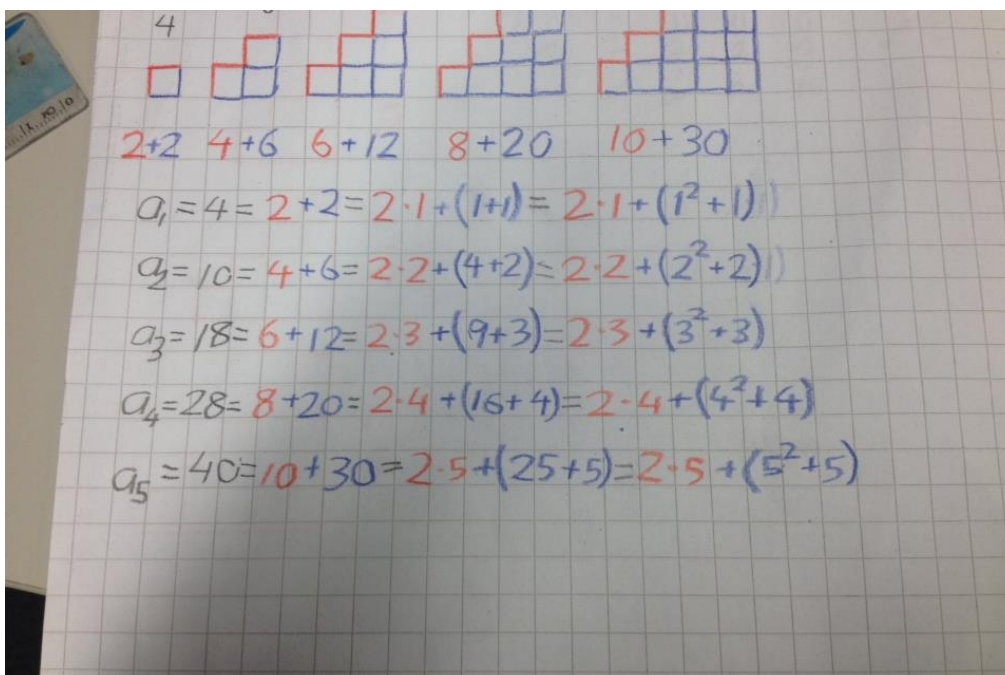 4
2+2 4+6 6+12 8+20 10+30
a₁ = 4 = 2+2 = 2·1+(1+1) = 2·1+(1²+1)
a₂ = 10 = 4+6 = 2·2+(4+2) = 2·2+(2²+2)
a₃ = 18 = 6+12 = 2·3+(9+3) = 2·3+(3²+3)
a₄ = 28 = 8+20 = 2·4+(16+4) = 2·4+(4²+4)
a₅ = 40 = 10+30 = 2·5+(25+5) = 2·5+(5²+5)